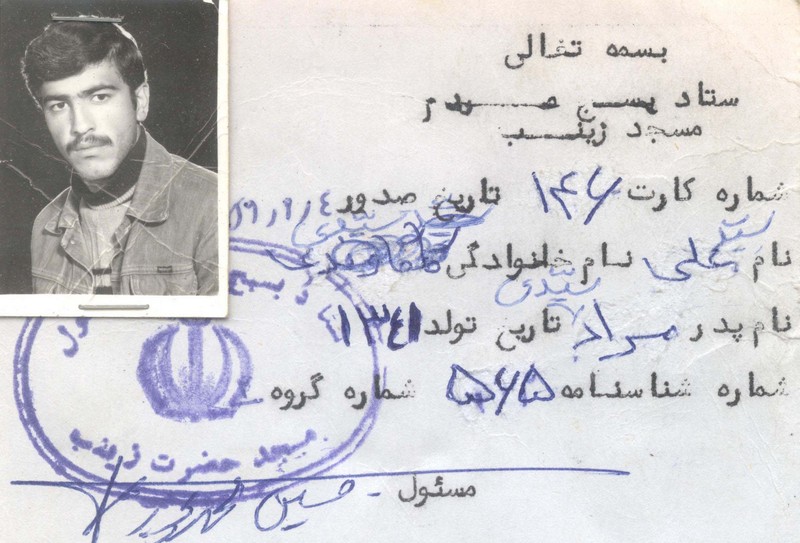 بسمه تعالی
ستاد بسیج مردم
مسجد زینب
شماره کارت ۱۴۶ تاریخ صدور
نام علی نام خانوادگی
سیدی
نام پدر مراد تاریخ تولد ۱۳۴۱
شماره شناسنامه ۵۶۵ شماره گروه
مسجد حضرت زینب
مسئول
حسین